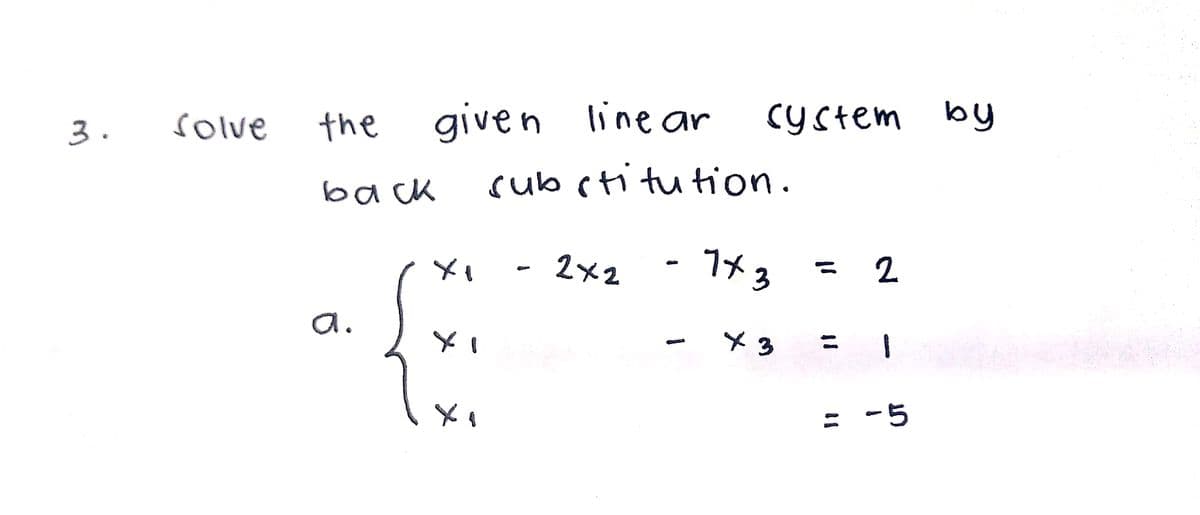 3. solve the given linear system by
back substitution.
a. { x₁ - 2x₂ - 7x₃ = 2
x₁ - x₃ = 1
x₁ = -5